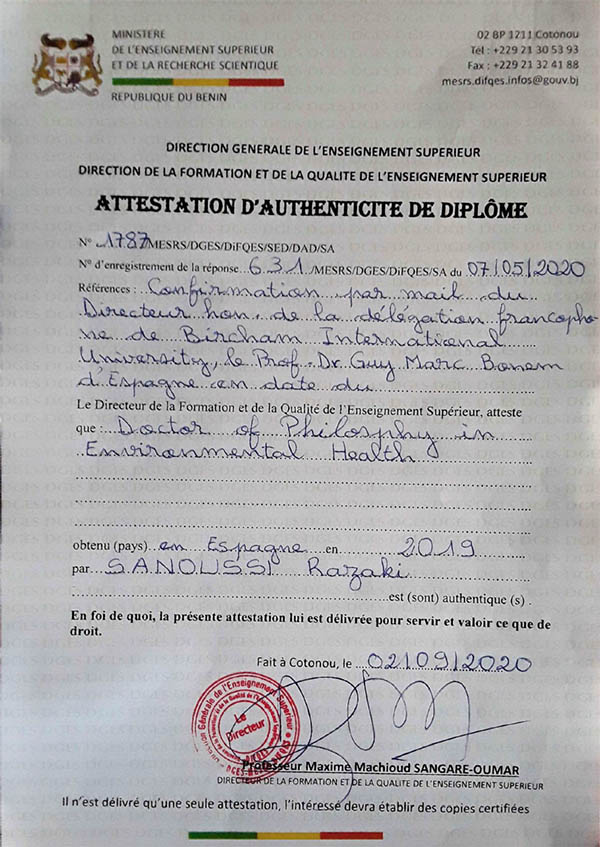 MINISTERE
DE L'ENSEIGNEMENT SUPERIEUR
ET DE LA RECHERCHE SCIENTIFIQUE
REPUBLIQUE DU BENIN
02 BP 1211 Cotonou
Tél : +229 21 30 53 93
Fax : +229 21 32 41 88
mesrs.difqes.infos@gouv.bj
DIRECTION GENERALE DE L'ENSEIGNEMENT SUPERIEUR
DIRECTION DE LA FORMATION ET DE LA QUALITE DE L'ENSEIGNEMENT SUPERIEUR
ATTESTATION D'AUTHENTICITE DE DIPLÔME
N° 1787/MESRS/DGES/DiFQES/SED/DAD/SA
N° d'enregistrement de la réponse 631 /MESRS/DGES/DiFQES/SA du 07/05/2020
Références : Confirmation par mail du
Directeur hon. de la délégation francopho-
ne de Bircham International
University, le Prof. Dr. Guy Marc Bonem
d'Espagne en date du
Le Directeur de la Formation et de la Qualité de l'Enseignement Supérieur, atteste
que : Doctor of Philosphy in
Environmental Health
obtenu (pays) en Espagne en 2019
par SANOUSSI Razaki
est (sont) authentique (s) .
En foi de quoi, la présente attestation lui est délivrée pour servir et valoir ce que de
droit.
Fait à Cotonou, le 02/09/2020
Le
Directeur
Professeur Maxime Machioud SANGARE-OUMAR
DIRECTEUR DE LA FORMATION ET DE LA QUALITE DE L'ENSEIGNEMENT SUPERIEUR
Il n'est délivré qu'une seule attestation, l'intéressé devra établir des copies certifiées